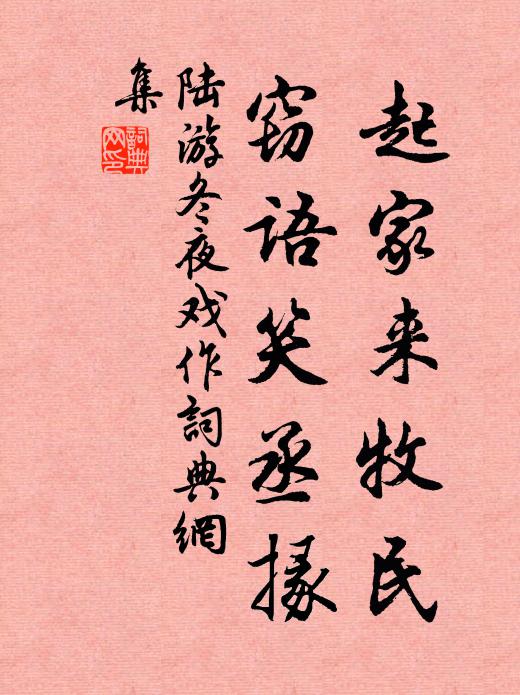 起家来牧民
窃語笑丞掾
陆游冬夜戏作詞典網
集
詞典
网印